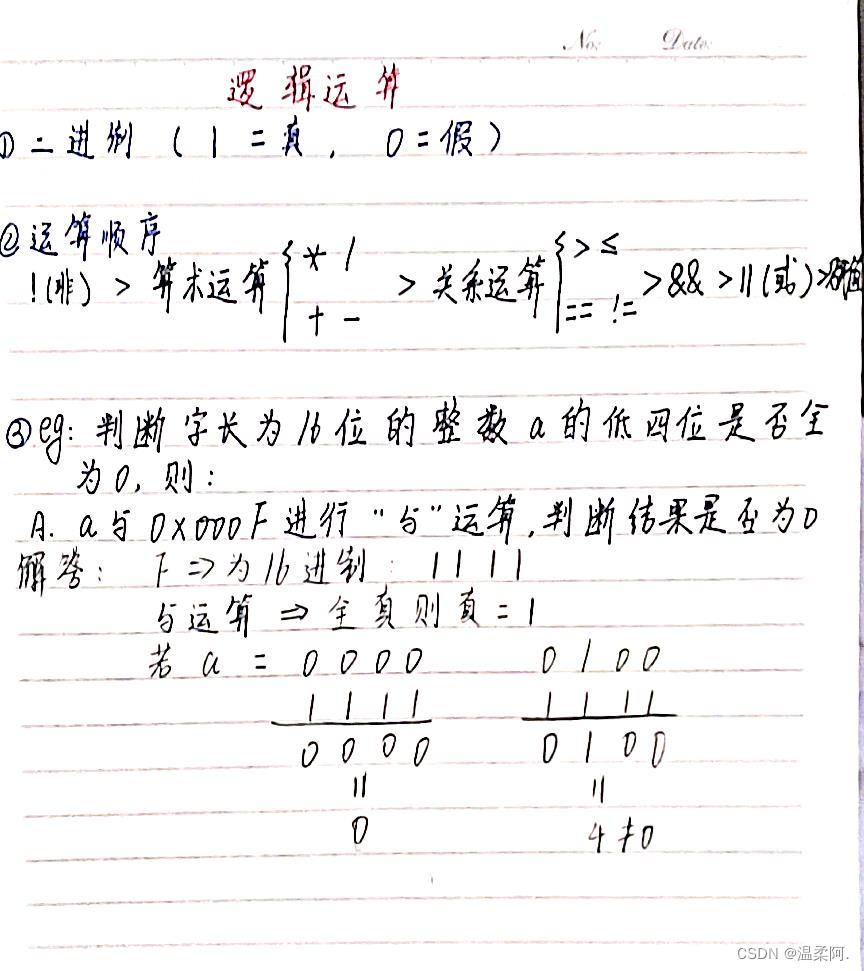 No: Date:
逻辑运算
①二进制(1=真,0=假)
②运算顺序
!(非)>算术运算{* / + - >关系运算{> ≤ == != >&&>||(或)>赋值
③eg:判断字长为16位的整数a的低四位是否全
为0,则:
A. a与0x000F进行"与"运算,判断结果是否为0
解答: F=>为16进制: 1111
与运算⇒全真则真=1
若a= 0000 0100
1111 1111
0000 0100
= =
0 4≠0
CSDN @温柔阿.